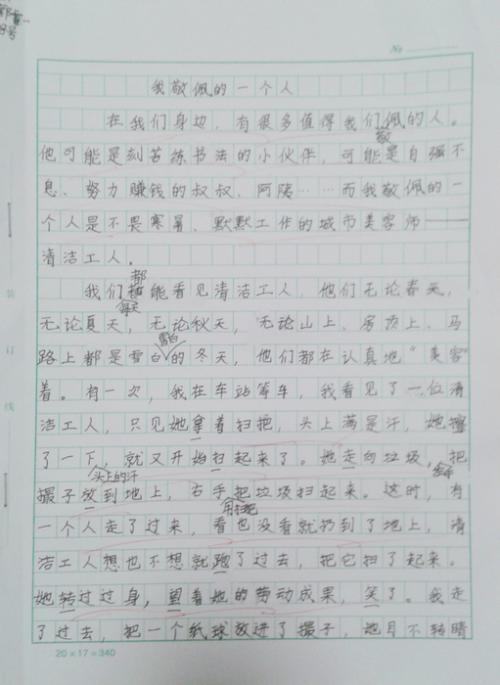 No
我敬佩的一个人
在我们身边，有很多值得我们佩的人。
敬
他可能是刻苦练书法的小伙伴，可能是自强不
息、努力赚钱的叔叔、阿姨……而我敬佩的一
个人是不畏寒暑、默默工作的城市美容师——
清洁工人。
都
我们能看见清洁工人，他们无论春天，
每天
无论夏天，无论秋天，无论山上、房顶上、马
雪白
路上都是雪白的冬天，他们都在认真地“美容”
着。有一次，我在车站等车，我看见了一位清
洁工人，只见她拿着扫把，头上满是汗，她擦
了一下，就又开始扫起来了。她走向垃圾，把
头上的汗
撮子放到地上，右手把垃圾扫起来。这时，有
用扫把
一个人走了过来，看也没看就扔到了地上，清
洁工人想也不想就跑了过去，把它扫了起来。
她转过过身，望着她的劳动成果，笑了。我走
了过去，把一个纸球放进了撮子，她目不转睛
20×17=340
装
订
线